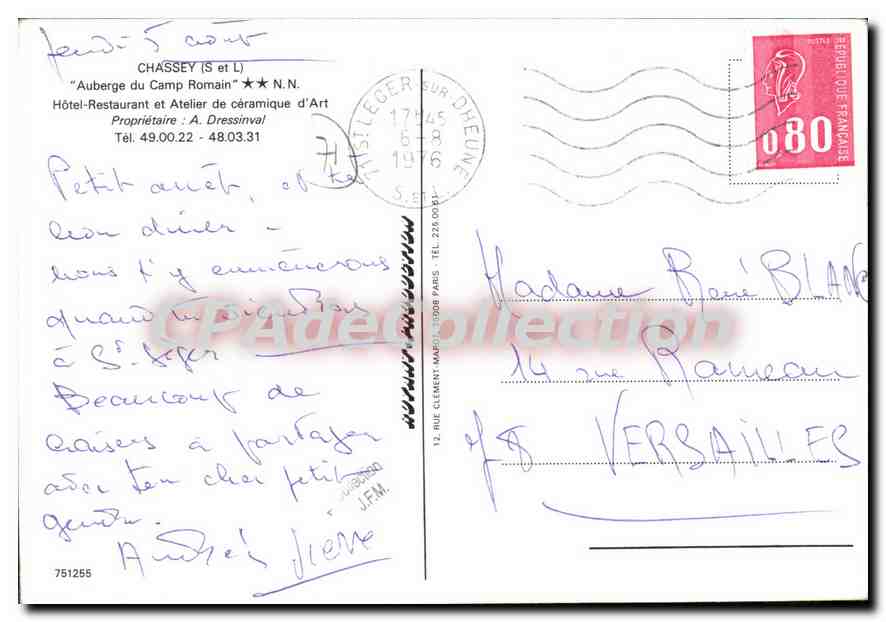 Jeudi 5 août
CHASSEY (S et L)
"Auberge du Camp Romain" ★★ N.N.
Hôtel-Restaurant et Atelier de céramique d'Art
Propriétaire : A. Dressinval
Tél. 49.00.22 - 48.03.31
71
Petit arrêt, et
bon dîner -
nous t'y emmènerons
quand tu
à St. Léger
Beaucoup de
baisers à partager
avec ton cher petit
Andrée Pierre
751255
12, RUE CLÉMENT-MAROT, 75008 PARIS - TÉL. 225.00.61
COLLECTION
J.F.M.
71 ST LEGER SUR DHEUNE
17H45
6-8
1976
S. et L.
POSTES
RÉPUBLIQUE FRANÇAISE
0,80
Madame René BLANC
14 rue Rameau
78 VERSAILLES
CPAdeCollection